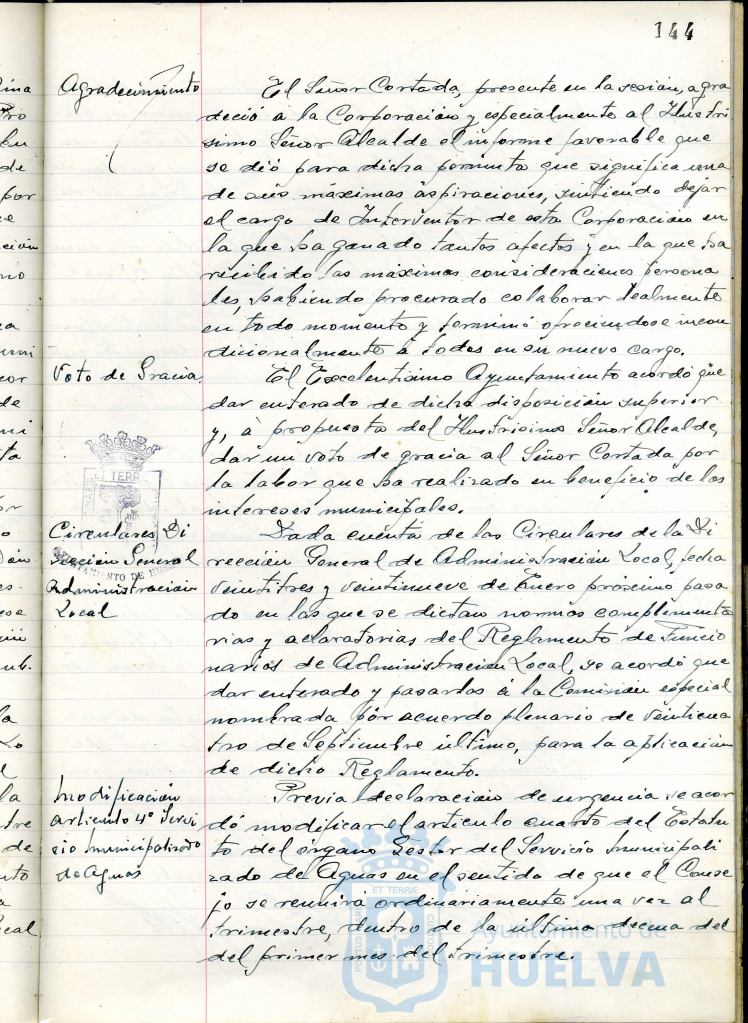 144
Agradecimiento
El Señor Cortada, presente en la sesión, agra
deció a la Corporación y especialmente al Ilustri
simo Señor Alcalde el informe favorable que
se dió para dicha permuta que significa una
de sus máximas aspiraciones, sintiendo dejar
el cargo de Interventor de esta Corporación en
la que ha ganado tantos afectos y en la que ha
recibido las máximas consideraciones persona
les, habiendo procurado colaborar lealmente
en todo momento y terminó ofreciendose incon
dicionalmente á todos en su nuevo cargo.
Voto de Gracia.
El Excelentísimo Ayuntamiento acordó que
dar enterado de dicha disposición superior
y, á propuesta del Ilustrísimo Señor Alcalde,
dar un voto de gracia al Señor Cortada por
la labor que ha realizado en beneficio de los
intereses municipales.
Circulares Di
rección General
Administración
Local
Dada cuenta de las Circulares de la Di
rección General de Administración Local, fecha
veintitres y veintinueve de Enero próximo pasa
do en las que se dictan normas complementa
rias y aclaratorias del Reglamento de Funcio
narios de Administración Local, se acordó que
dar enterado y pasarlas á la Comisión especial
nombrada por acuerdo plenario de veinticua
tro de Septiembre último, para la aplicación
de dicho Reglamento.
Modificación
artículo 4º Servi
cio municipalizado
de Aguas
Previa declaración de urgencia se acor
dó modificar el artículo cuarto del Estatu
to del órgano Gestor del Servicio municipali
zado de Aguas en el sentido de que el Conse
jo se reunirá ordinariamente una vez al
trimestre, dentro de la última decena del
del primer mes del trimestre.
Ayuntamiento de
HUELVA